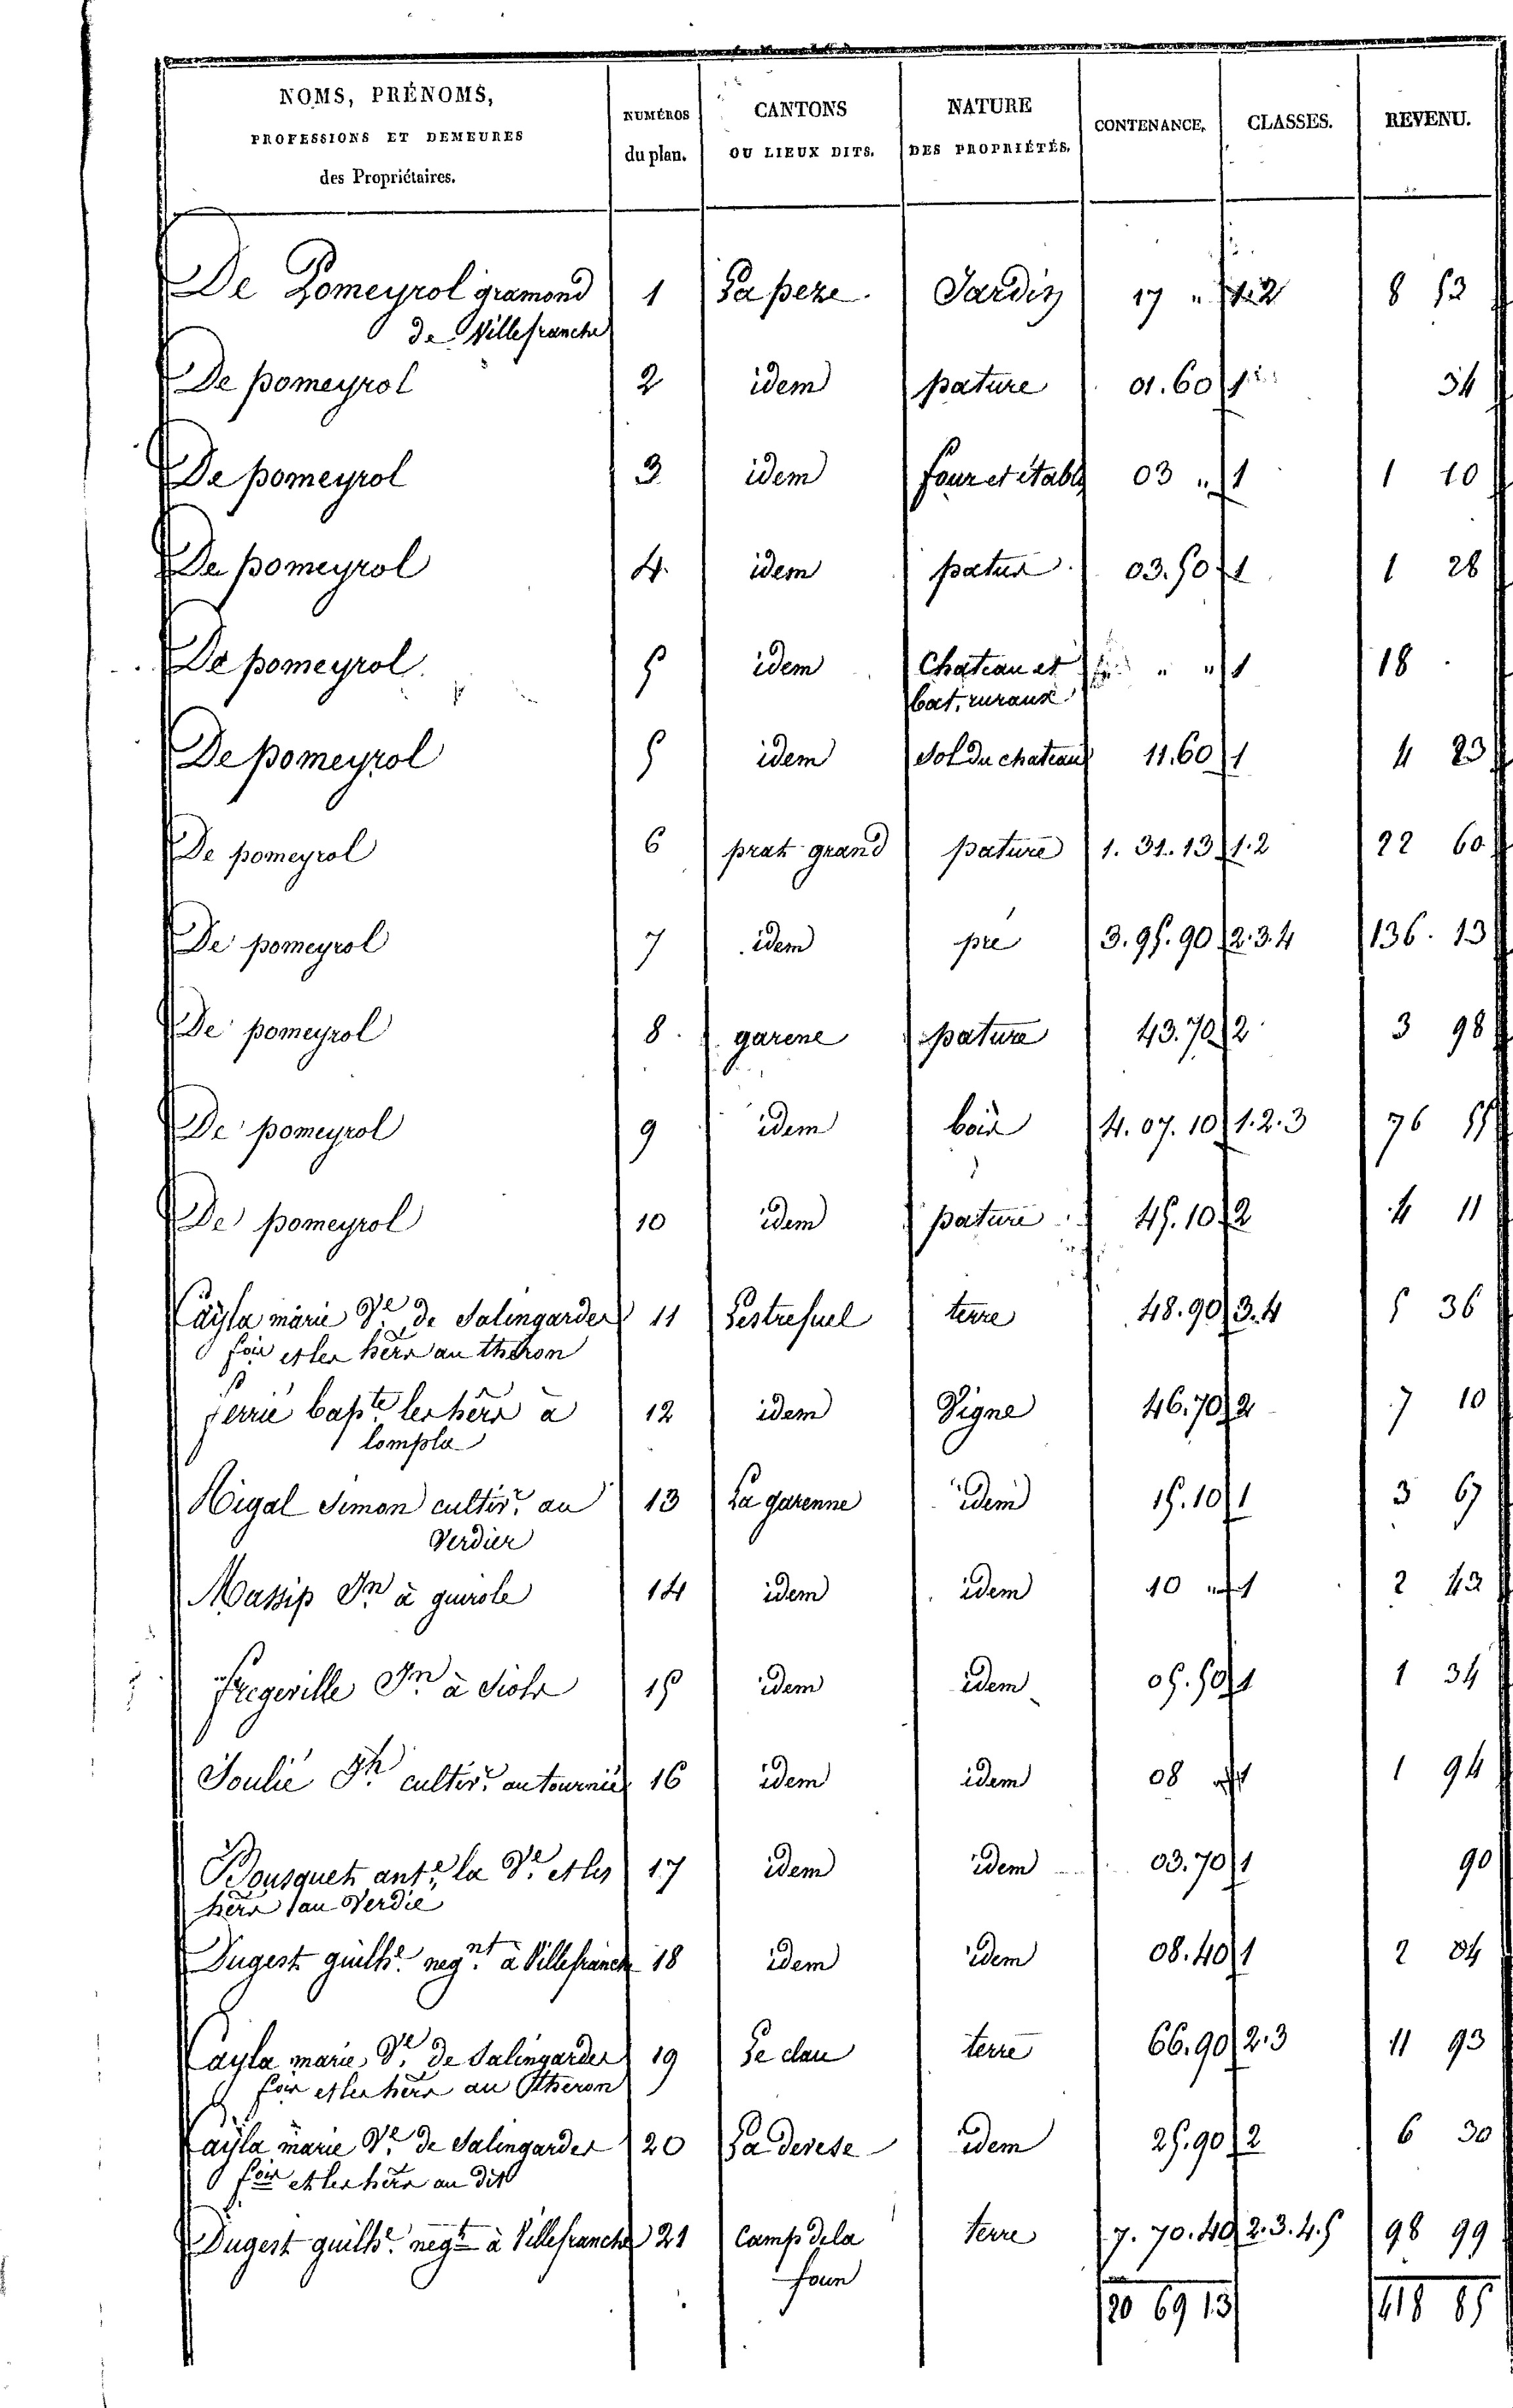 NOMS, PRÉNOMS, PROFESSIONS ET DEMEURES des Propriétaires. NUMÉROS du plan. CANTONS OU LIEUX DITS. NATURE DES PROPRIÉTÉS. CONTENANCE. CLASSES. REVENU.
De Pomeyrol gramond 1 La peze Jardin 17 " 1.2 8 52
de Villefranche
De pomeyrol 2 idem pature 01.60 1 54
De pomeyrol 3 idem four et étable 03 " 1 1 10
De pomeyrol 4 idem pature 03.50 1 1 28
De pomeyrol 5 idem Chateau et " " 1 18
bat. ruraux
De pomeyrol 5 idem Sol du chateau 11.60 1 4 23
De pomeyrol 6 prat grand pature 1.31.13 1.2 22 60
De pomeyrol 7 idem pré 3.95.90 2.3.4 136.13
De pomeyrol 8 garene pature 43.70 2 3 98
De pomeyrol 9 idem bois 4.07.10 1.2.3 76 55
De pomeyrol 10 idem pature 45.10 2 4 11
Cayla marie Ve de Salingardes 11 Lestrefuel terre 48.90 3.4 5 36
fois et les hérs au theron
ferrié bapte les hérs à 12 idem Vigne 46.70 2 7 10
lompla
Rigal Simon cultivr au 13 La garenne idem 15.10 1 3 67
Verdier
Massip Jn à guirole 14 idem idem 10 " 1 2 43
fregeville Jn à 15 idem idem 05.50 1 1 34
Soulié Jh cultivr au tournié 16 idem idem 08 " 1 1 94
Bousquet ante la Ve et les 17 idem idem 03.70 1 90
hérs au Verdié
Dugest guille negnt à Villefranche 18 idem idem 08.40 1 2 04
Cayla marie Ve de Salingardes 19 Le clau terre 66.90 2.3 11 93
fois et les hérs au theron
Cayla marie Ve de Salingardes 20 La devese idem 25.90 2 6 30
fois et les hérs au dit
Dugest guille negt à Villefranche 21 Camp de la terre 7.70.40 2.3.4.5 98 99
foun
20 69 13 418 85